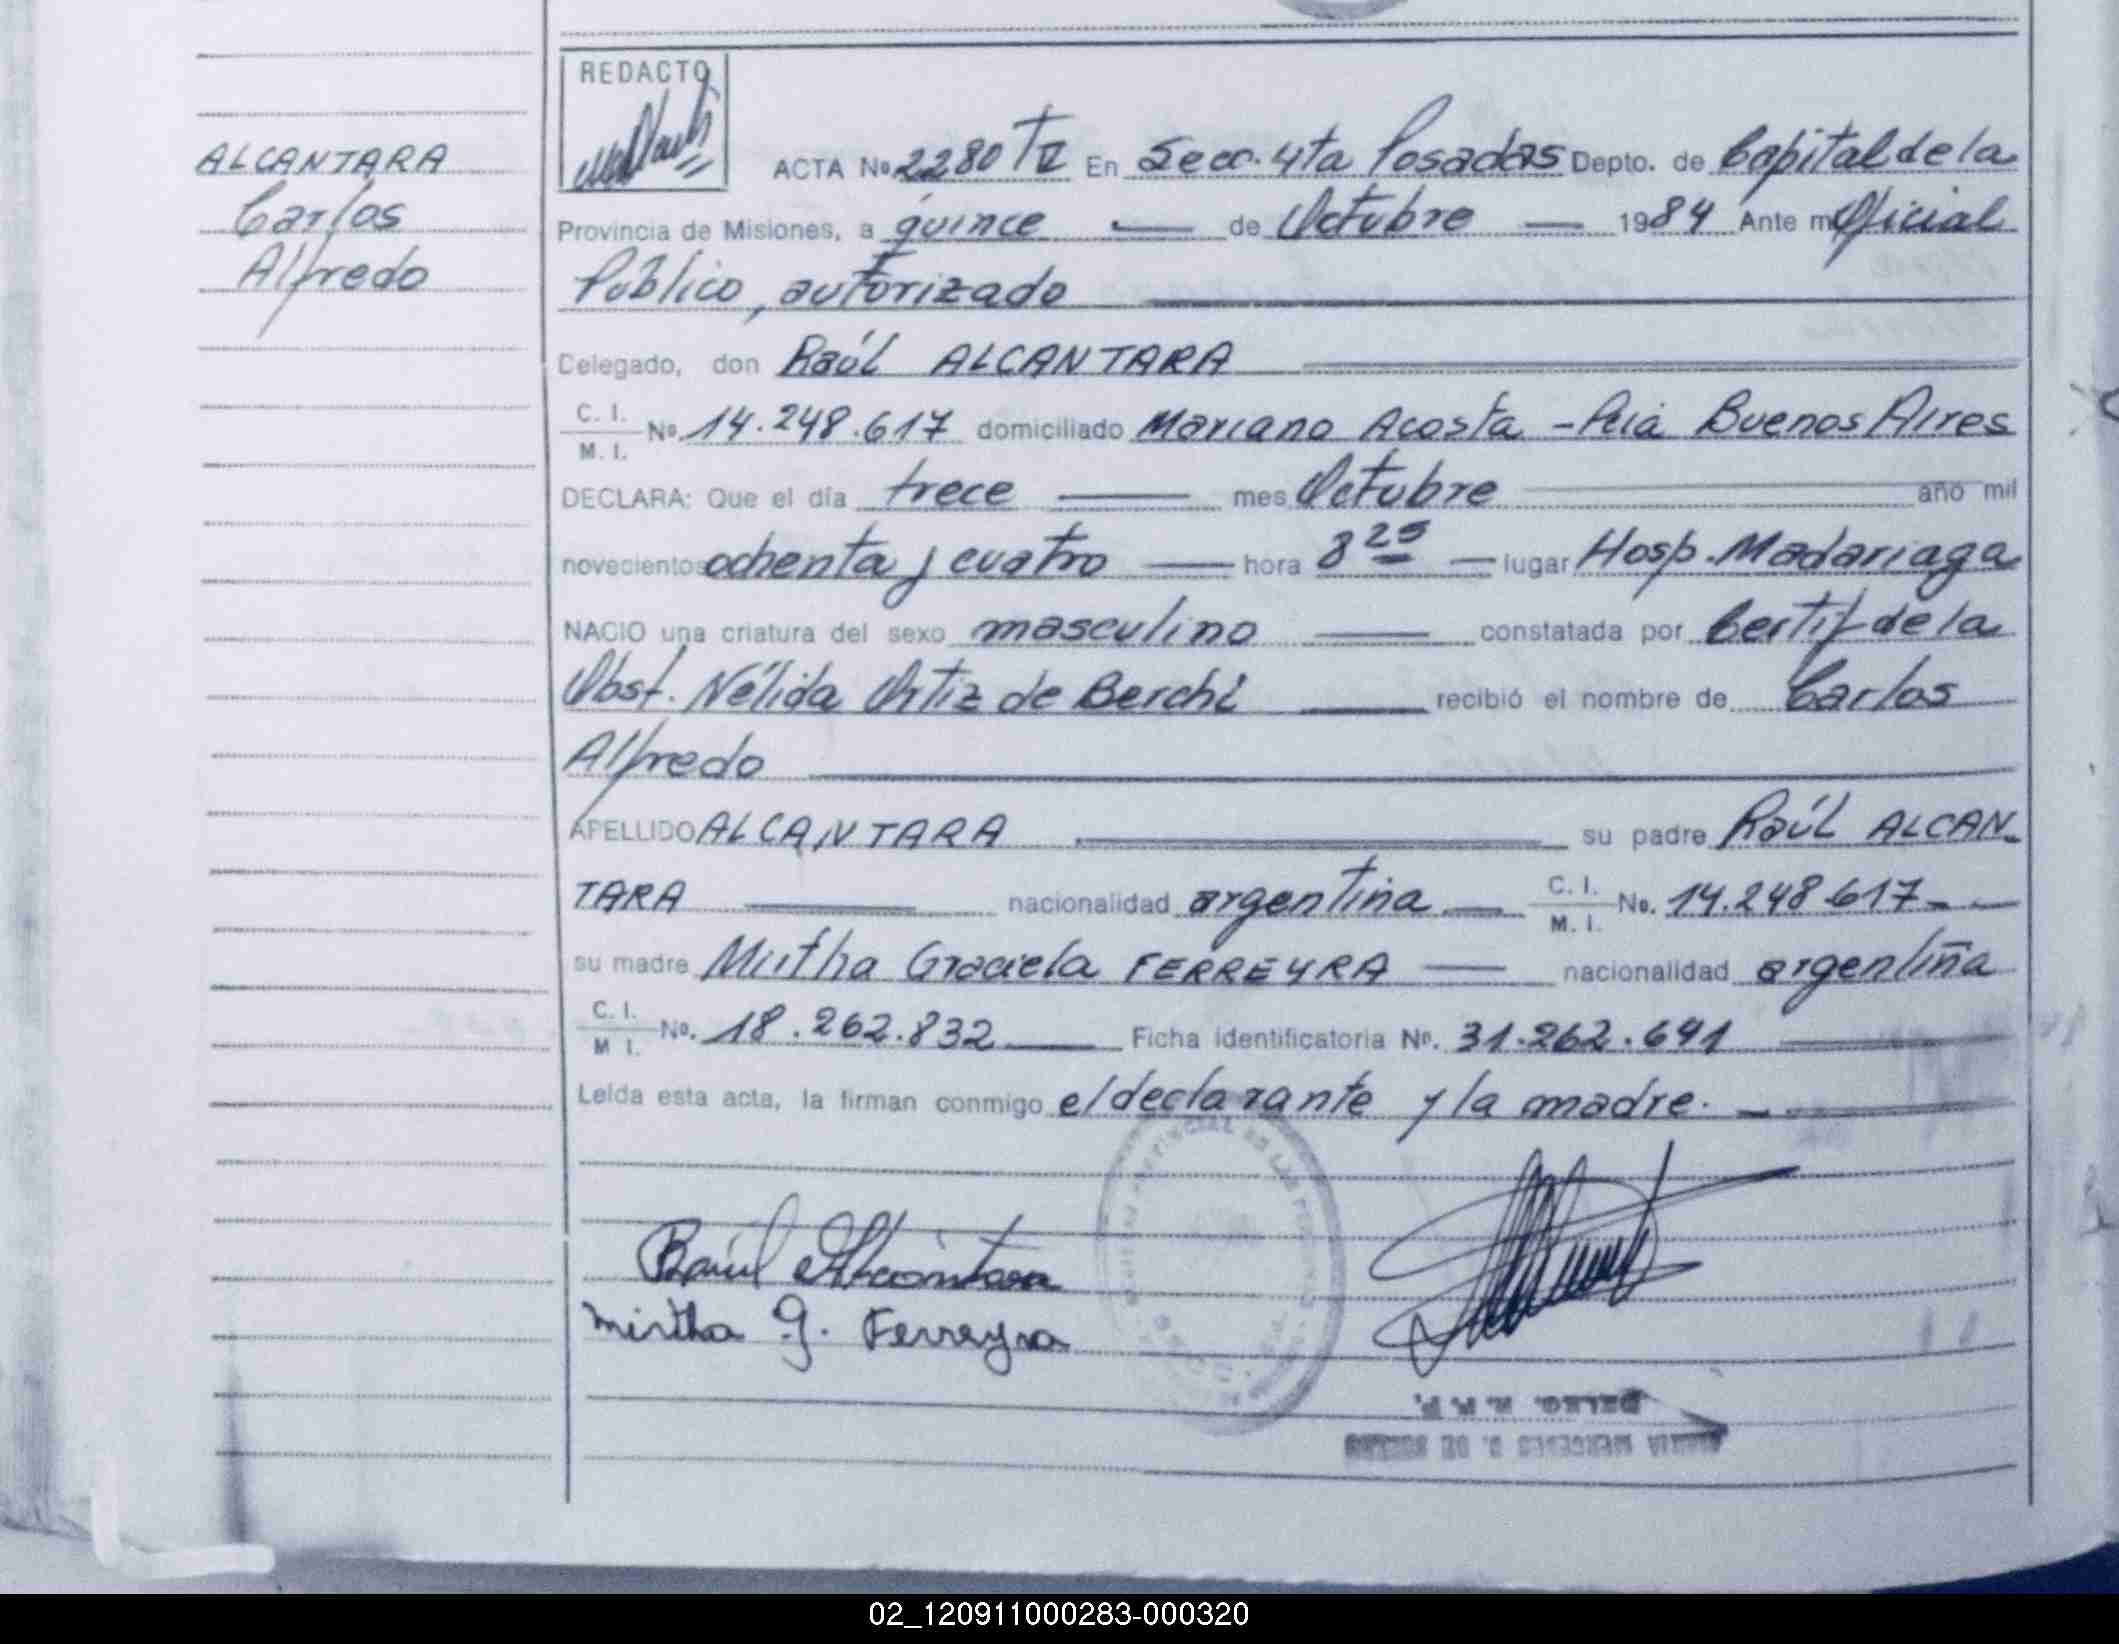 REDACTO
ALCANTARA
Carlos
Alfredo
ACTA No. 2280 TV En Secc. 4ta Posadas Depto. de Capital de la
Provincia de Misiones, a quince — de Octubre — 1984 Ante mi Oficial
Público, autorizado
Celegado, don Raúl ALCANTARA
C. I.
M. I. No. 14.248.617 domiciliado Mariano Acosta - Pcia Buenos Aires
DECLARA: Que el día trece — mes Octubre año mil
novecientos ochenta y cuatro — hora 8 25 — lugar Hosp. Madariaga
NACIO una criatura del sexo masculino — constatada por Certif de la
Obst. Nélida Ortiz de Berchi — recibió el nombre de Carlos
Alfredo
APELLIDO ALCANTARA su padre Raúl ALCAN-
TARA — nacionalidad argentina — C. I. M. I. No. 14.248.617 - -
su madre Mirtha Graciela FERREYRA — nacionalidad argentina
C. I.
M I. No. 18.262.832 — Ficha identificatoria No. 31.262.691
Leída esta acta, la firman conmigo el declarante y la madre. -
Raúl Alcántara
Mirtha G. Ferreyra
DELEG. R. P. P.
MARIA MERCEDES DE
02_120911000283-000320